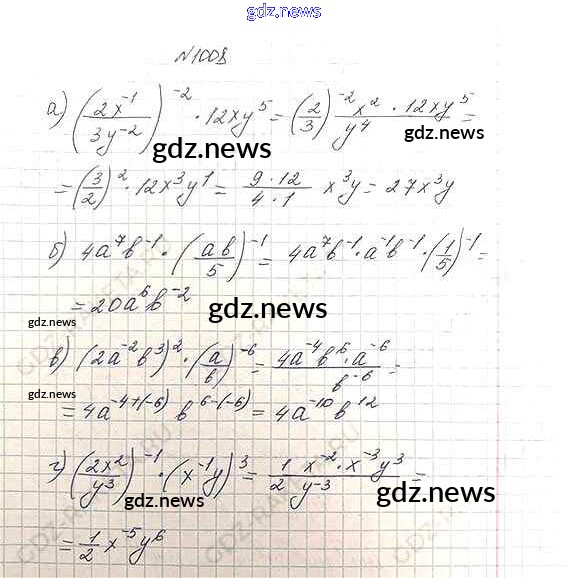 gdz.news
N1008
а) (2x⁻¹/3y⁻²)⁻² · 12xy⁵ = (2/3)⁻² x² · 12xy⁵/y⁴ =
gdz.news
gdz.news
= (3/2)² · 12x³y¹ = 9·12/4·1 x³y = 27x³y
б) 4a⁷b⁻¹ · (ab/5)⁻¹ = 4a⁷b⁻¹ · a⁻¹b⁻¹ · (1/5)⁻¹ =
= 20a⁶b⁻²
gdz.news
gdz.news
в) (2a⁻²b³)² · (a/b)⁻⁶ = 4a⁻⁴b⁶ · a⁻⁶/b⁻⁶ =
gdz.news
= 4a⁻⁴⁺⁽⁻⁶⁾ b⁶⁻⁽⁻⁶⁾ = 4a⁻¹⁰b¹²
г) (2x²/y³)⁻¹ · (x⁻¹y)³ = 1/2 x⁻² · x⁻³y³/y⁻³ =
gdz.news
gdz.news
= 1/2 x⁻⁵y⁶